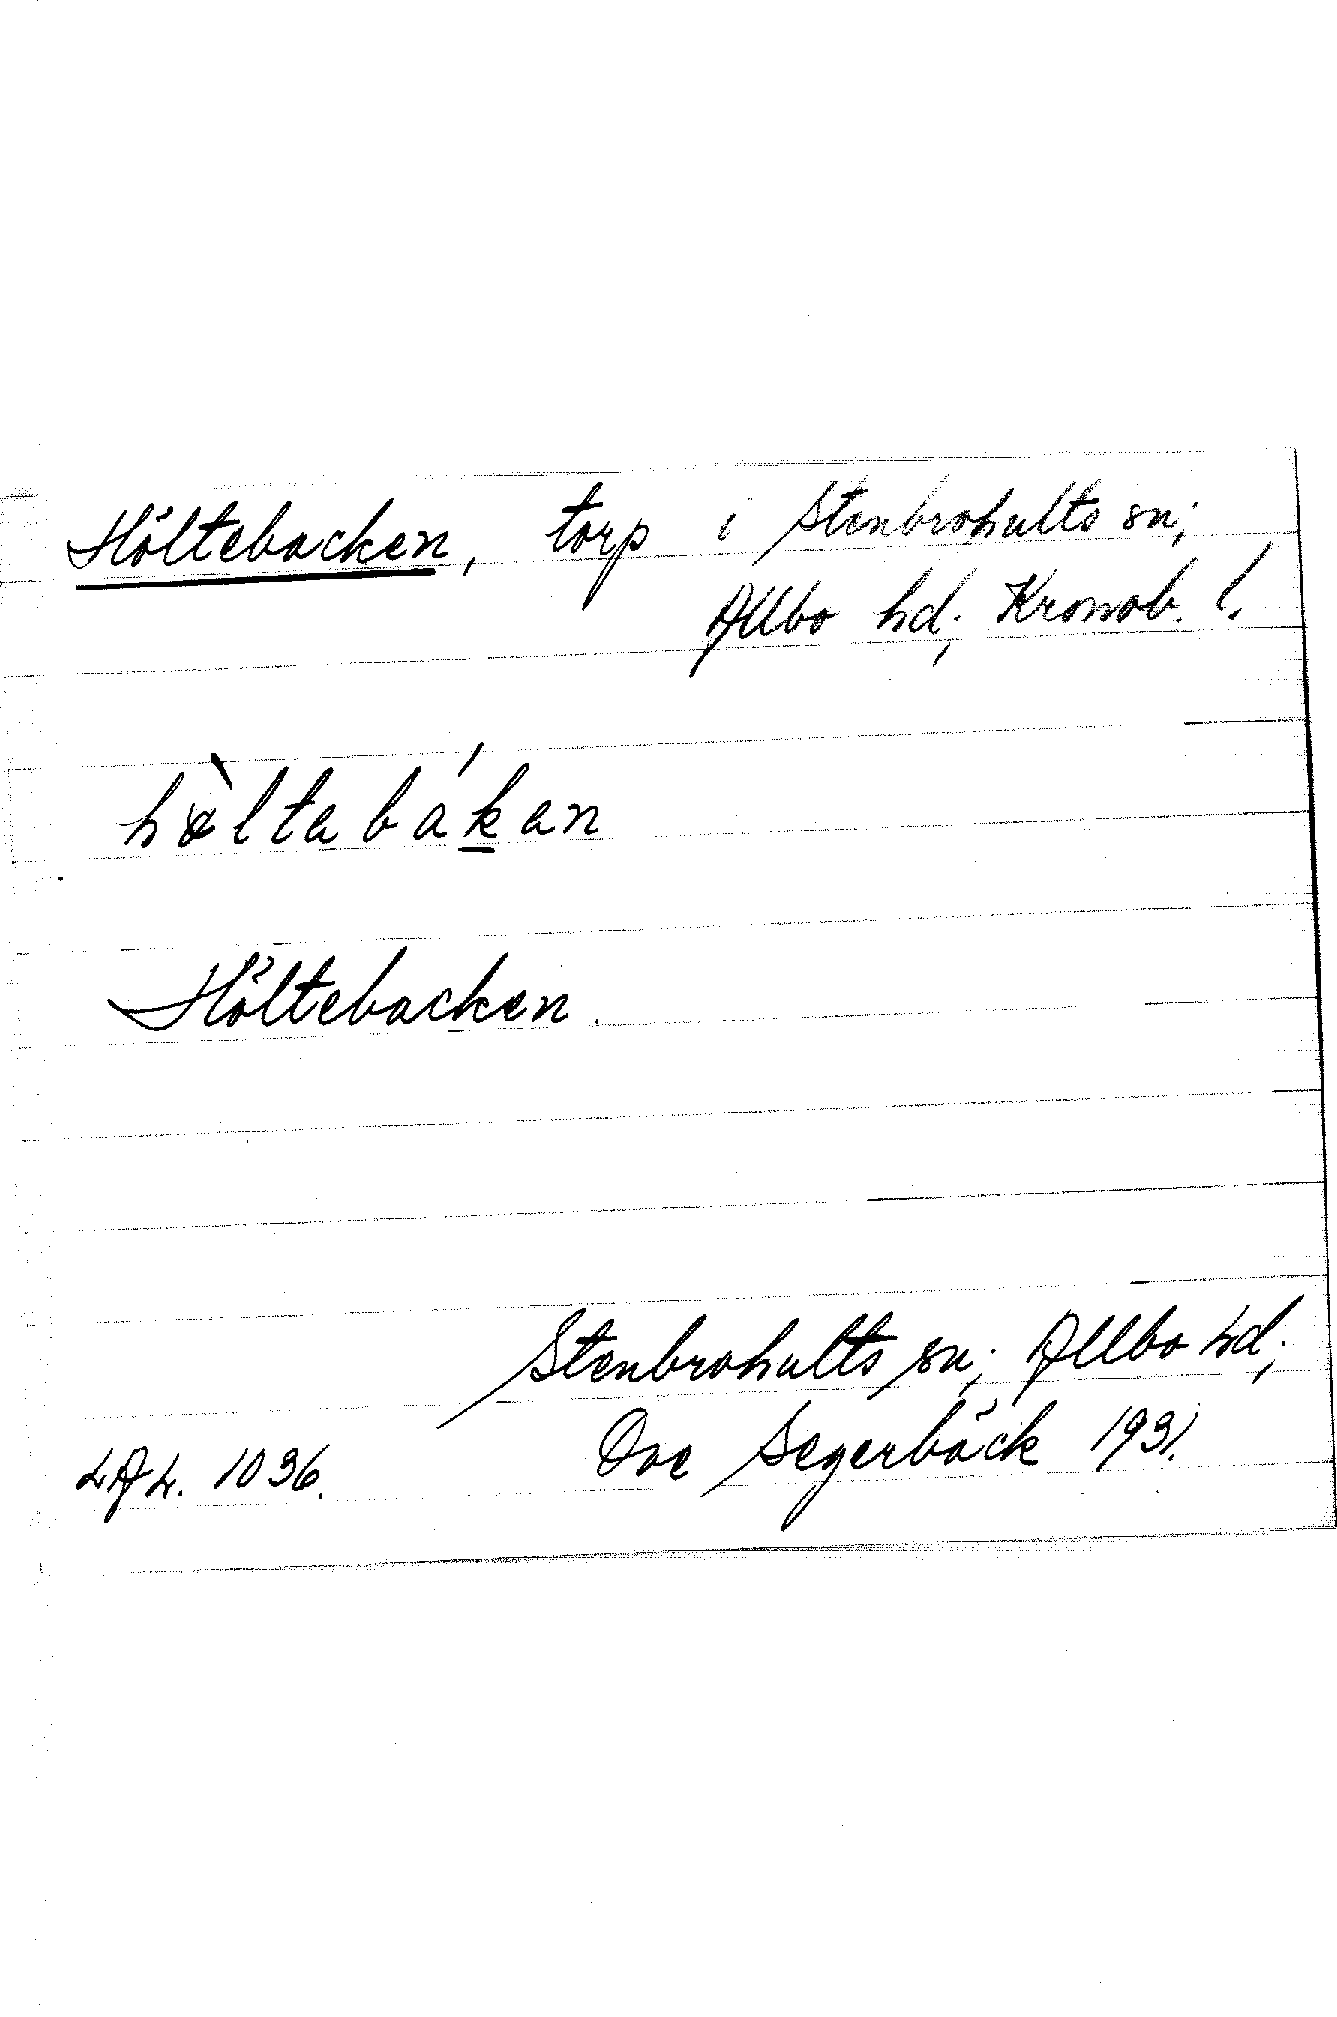 Höltebacken, torp i Stenbrohults sn;
Allbo hd; Kronob. l.
hœ̀ltabákan
Höltebacken.
Stenbrohults sn; Allbo hd;
Ove Segerbäck 1931.
LAL. 1036.